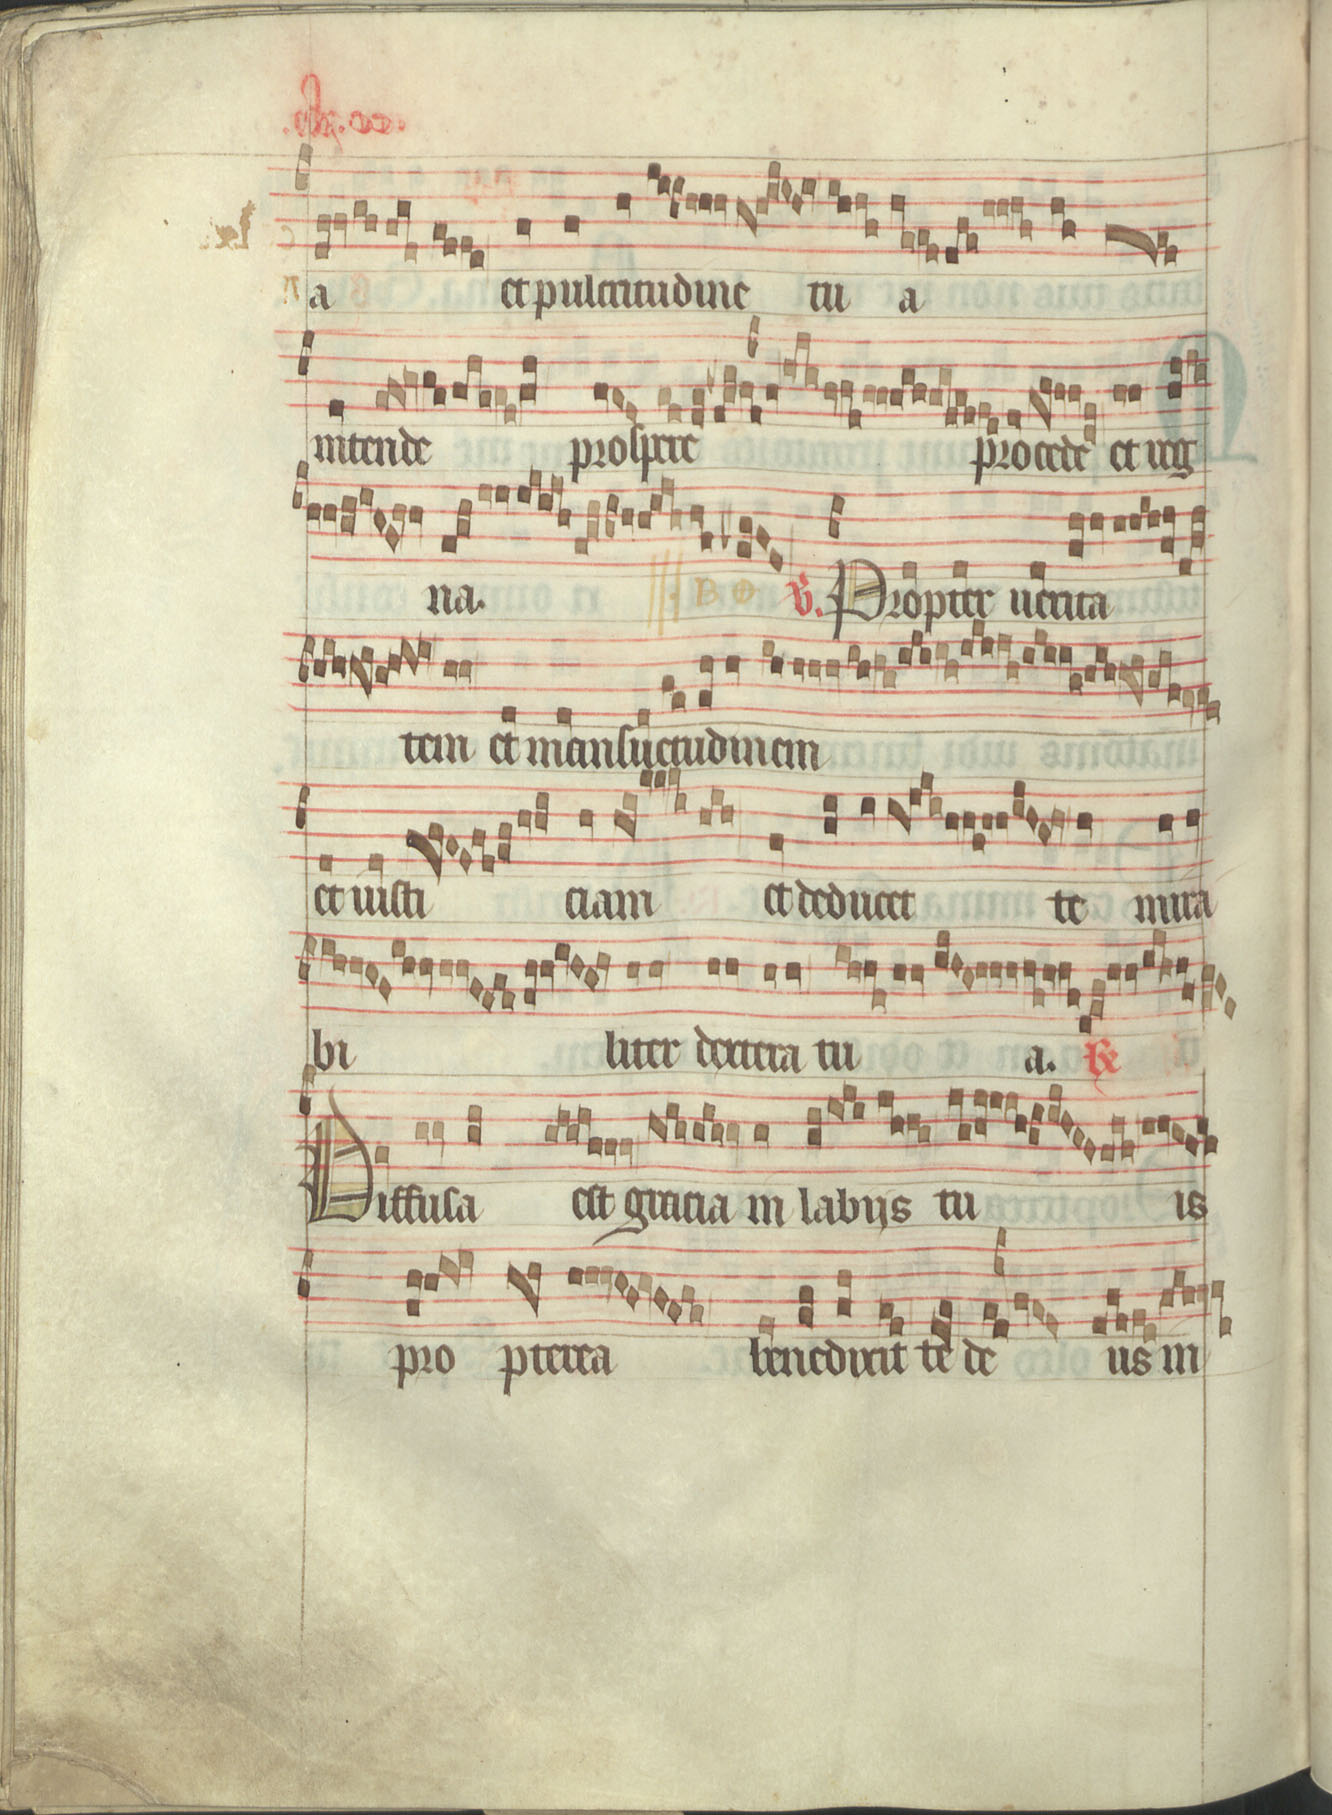 a et pulcritudine tu a
intende prospere procede et reg
na. V. Propter uerita
tem et mansuetudinem
et iusti ciam et deducet te mira
bi liter dextera tu a. R
Diffusa est gracia in labijs tu is
pro pterea benedixit te de us in